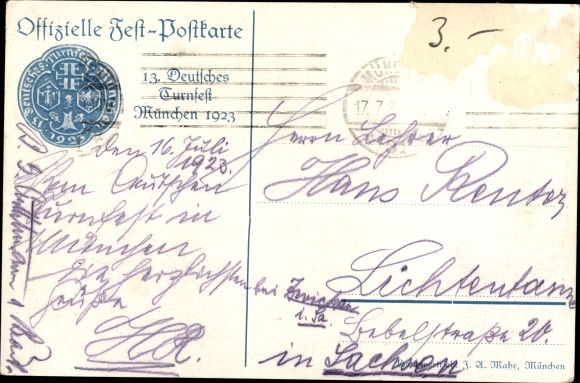 Offizielle Fest-Postkarte
3.-
13. Deutsches
Turnfest
München 1923
13. Deutsches Turnfest München
1923
MÜNC
17.7.2
den 16. Juli
1923.
Vom Deutschen
Turnfest in
München
die herzlichsten
Grüße
HR.
Herrn Lehrer
Hans Renter
Lichtentanne
bei Zwickau
i. Sa.
Bebelstraße 20.
in Sachsen
J. A. Mahr, München